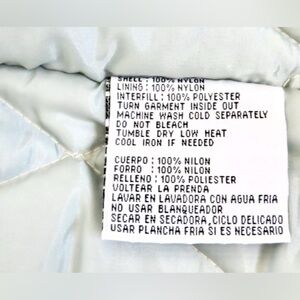 SHELL : 100% NYLON
LINING : 100% NYLON
INTERFILL : 100% POLYESTER
TURN GARMENT INSIDE OUT
MACHINE WASH COLD SEPARATELY
DO NOT BLEACH
TUMBLE DRY LOW HEAT
COOL IRON IF NEEDED
CUERPO : 100% NILON
FORRO : 100% NILON
RELLENO : 100% POLIESTER
VOLTEAR LA PRENDA
LAVAR EN LAVADORA CON AGUA FRIA
NO USAR BLANQUEADOR
SECAR EN SECADORA, CICLO DELICADO
USAR PLANCHA FRIA SI ES NECESARIO